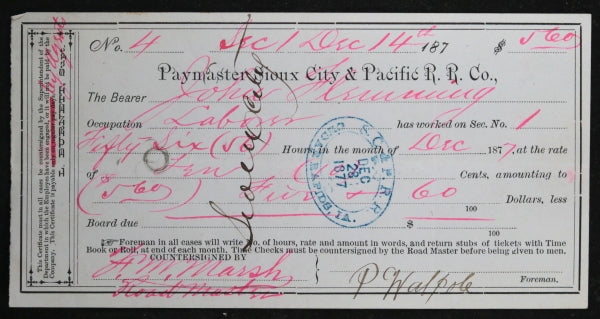 No. 4 Sec 1 Dec 14th 187 $ 5 60
Paymaster Sioux City & Pacific R. R. Co.,
The Bearer John Flemming
Occupation Laborer has worked on Sec. No. 1
Fifty Six (56) Hours in the month of Dec 1877 at the rate
of Ten (10) Cents, amounting to
(5 60) Five & 60/100 Dollars, less
Board due 100
Foreman in all cases will write No. of hours, rate and amount in words, and return stubs of tickets with Time
Book or Roll, at end of each month. Time Checks must be countersigned by the Road Master before being given to men.
COUNTERSIGNED BY
F. M. Marsh
Road Master
P Walpole
Foreman.
Sioux City
S. C. & P. R. R.
DEC
28
1877
CEDAR RAPIDS, IA.
This Certificate must in all cases be countersigned by the Superintendent of the
Department in which the Employe have been engaged, or it will not be paid by the
Company. This Certificate is payable
L. BURNETT, Supt.